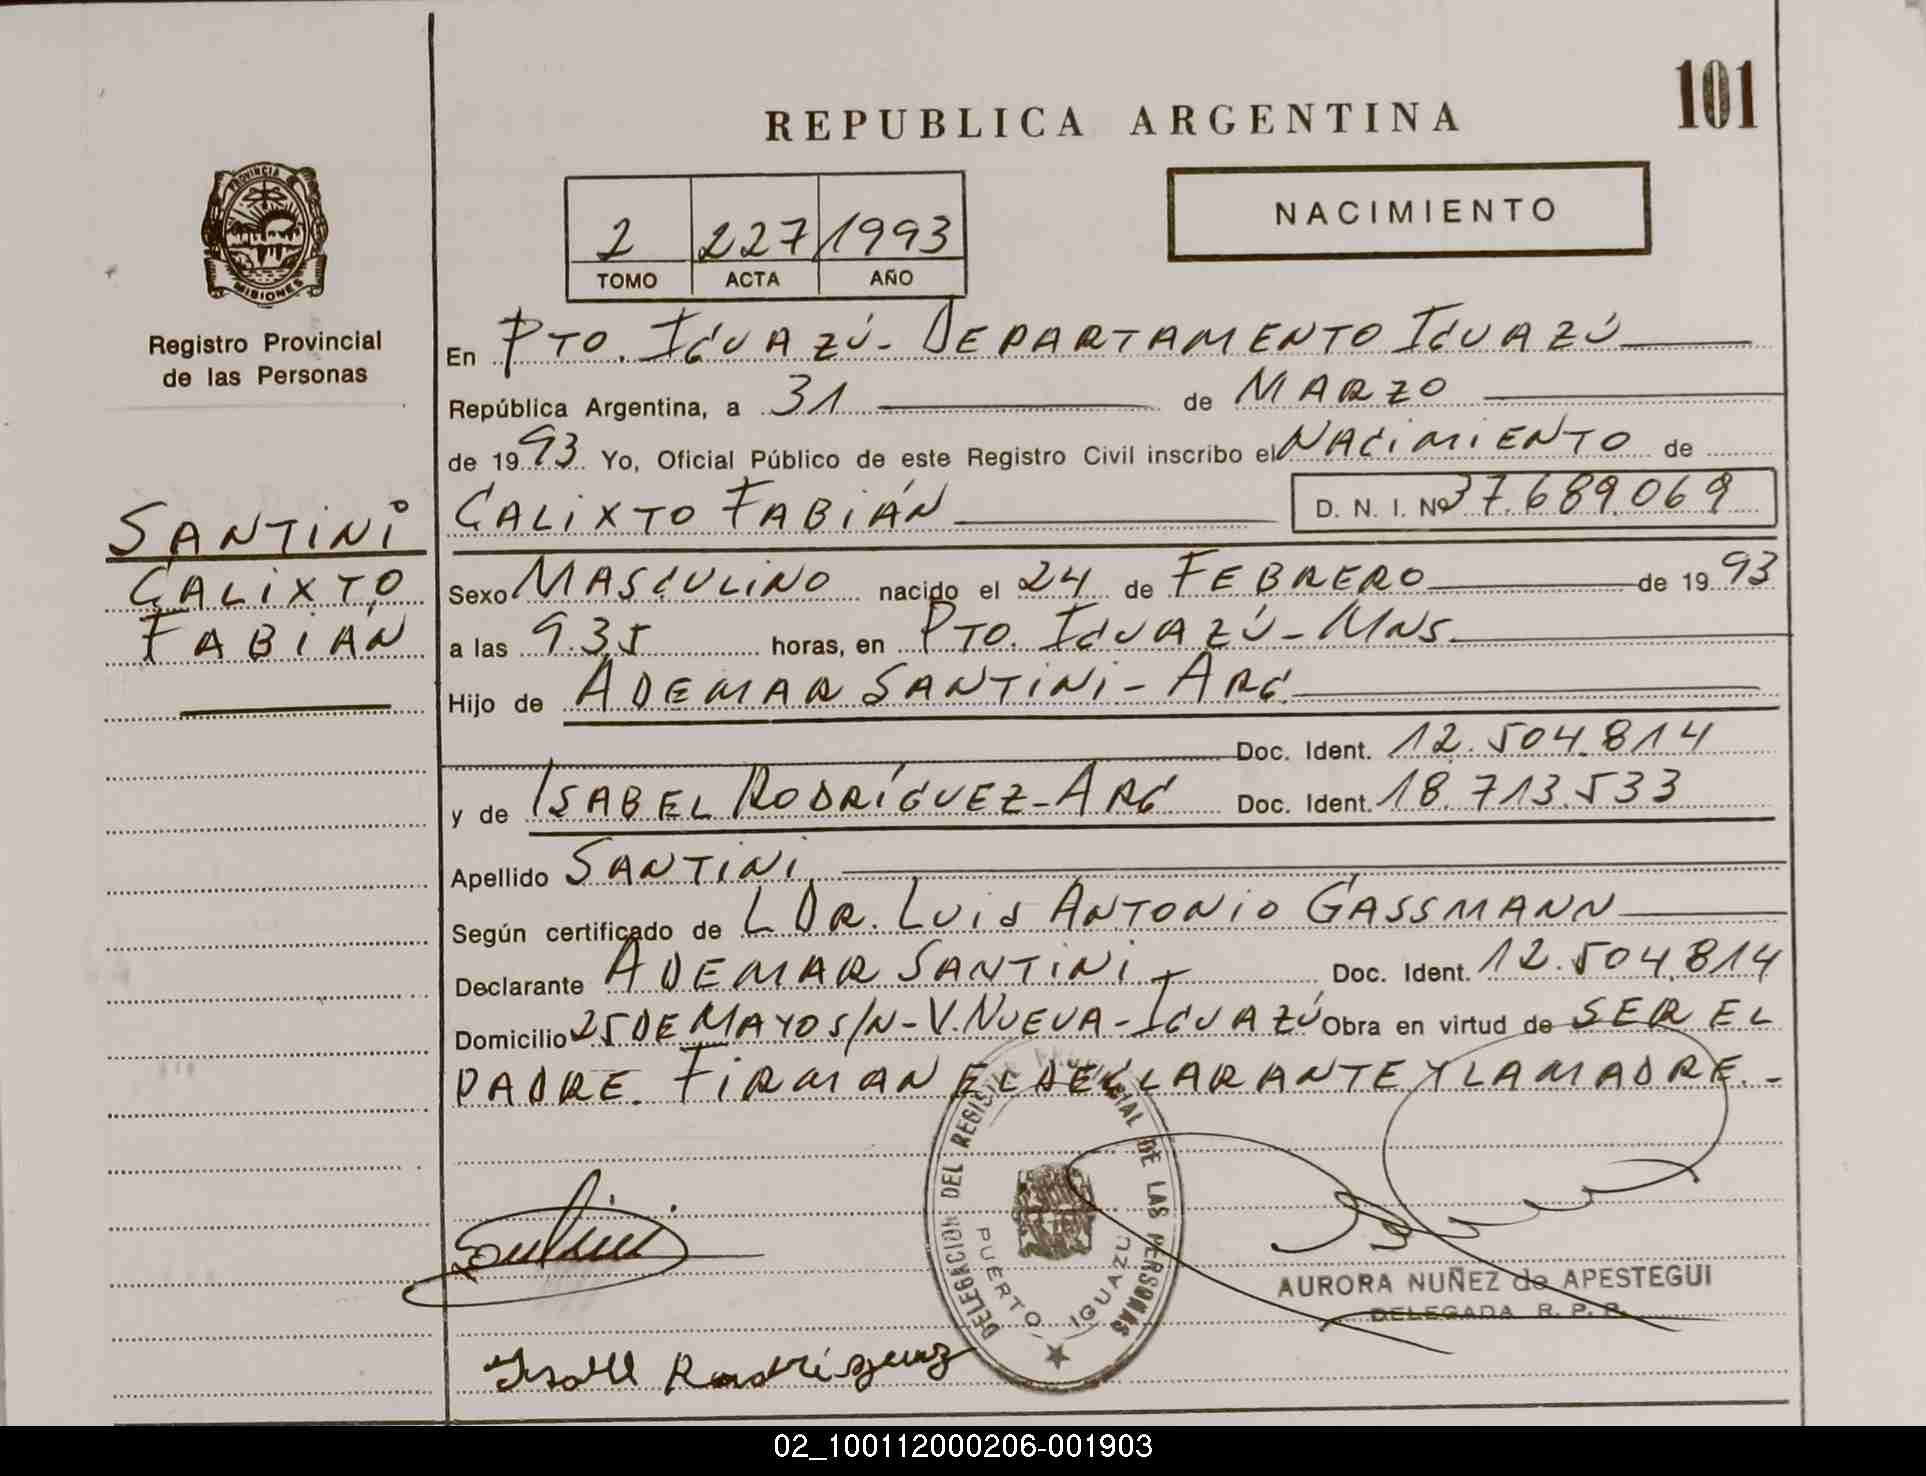 101
REPUBLICA ARGENTINA
PROVINCIA
MISIONES
Registro Provincial
de las Personas
2 227 1993
TOMO ACTA AÑO
NACIMIENTO
En PTO. IGUAZÚ - DEPARTAMENTO IGUAZÚ
República Argentina, a 31 de MARZO
de 1993 Yo, Oficial Público de este Registro Civil inscribo el NACIMIENTO de
CALIXTO FABIÁN D. N. I. Nº 37.689.069
SANTINI
CALIXTO
FABIÁN
Sexo MASCULINO nacido el 24 de FEBRERO de 1993
a las 9.35 horas, en PTO. IGUAZÚ - MNS.
Hijo de ADEMAR SANTINI - ARG.
Doc. Ident. 12.504.814
y de ISABEL RODRÍGUEZ - ARG Doc. Ident. 18.713.533
Apellido SANTINI
Según certificado de L DR. LUIS ANTONIO GASSMANN
Declarante ADEMAR SANTINI - Doc. Ident. 12.504.814
Domicilio 25 DE MAYO S/N - V. NUEVA - IGUAZÚ Obra en virtud de SER EL
PADRE. FIRMAN EL DECLARANTE Y LA MADRE. -
DELEGACION DEL REGISTRO PROVINCIAL DE LAS PERSONAS
PUERTO IGUAZU
Santini
AURORA NUÑEZ de APESTEGUI
DELEGADA R. P. P.
Isabel Rodríguez
02_100112000206-001903